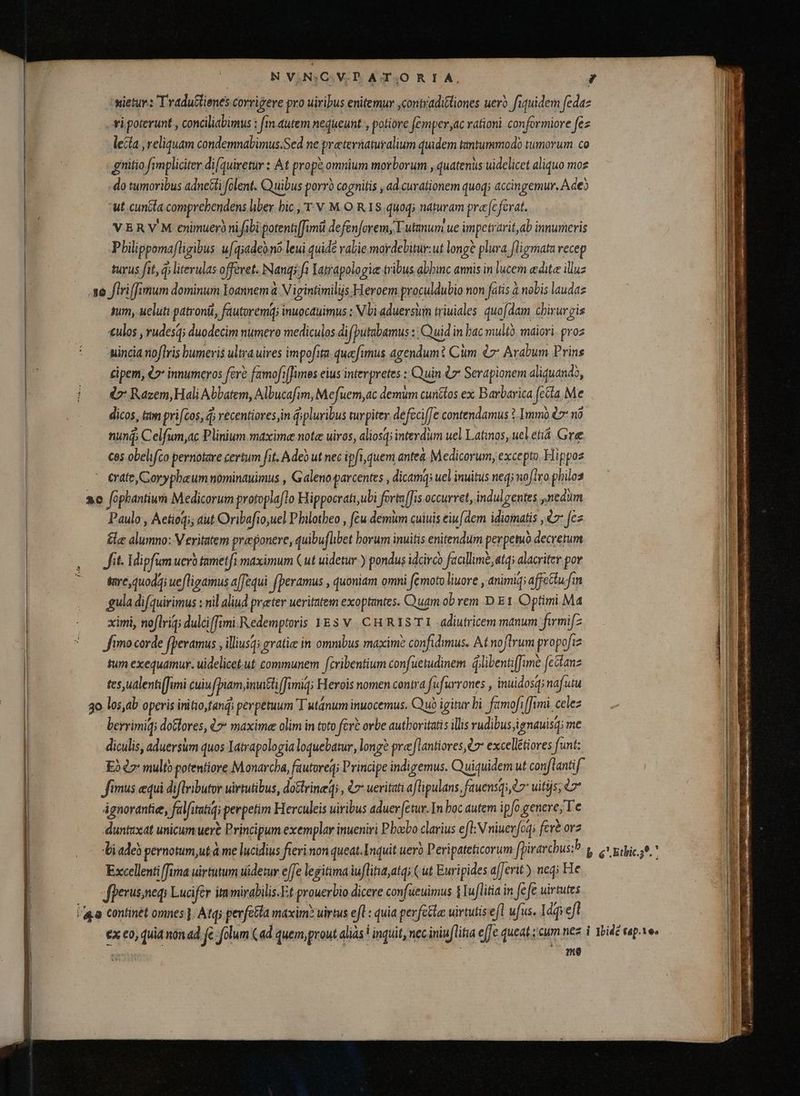 NVNCVPATORIA. 7
nietur: Traductiones corrigere pro uiribus enitemur, contradictiones uerò siquidem fedaz
ri poterunt, conciliabimus: sin autem nequeunt, potiore semper, ac rationi conformiore sez
lecta, reliquam condemnabimus. Sed ne præternaturalium quidem tantummodò tumorum co
gnitio simpliciter disquiretur: At propè omnium morborum, quatenùs uidelicet aliquo moz
do tumoribus adnecti solent. Quibus porrò cognitis, ad curationem quoq; accingemur. Adeò
ut cuncta comprehendens liber hic, TVMORIS quoq; naturam præ se ferat.
VERVM enimuerò nisi sibi potentissimũ defensorem, Tutanum'ue impetrarit, ab innumeris
Philippomastigibus usq;adeò nõ leui quidẽ rabie mordebitur: ut longè plura stigmata recep
turus sit, q̃ literulas offeret. Nanq; si Iatrapologiæ tribus abhinc annis in lucem æditæ illuz
10 strissimum dominum Ioannem à Vigintimilijs Heroem proculdubio non satis à nobis laudaz
tum, ueluti patronũ, fautoremq; inuocauimus: Vbi aduersùm triuiales quosdam chirurgiz
culos, rudesq; duodecim numero mediculos disputabamus: Quid in hac multò maiori proz
uincia nostris humeris ultra uires imposita quæsimus agendum? Cùm & Arabum Prinz
cipem, & innumeros ferè famosissimos eius interpretes: Quin & Serapionem aliquandò,
& Razem, Hali Abbatem, Albucasim, Mesuem, ac demùm cunctos ex Barbarica secta Me
dicos, tàm priscos, q̃ recentiores, in q̃pluribus turpiter defecisse contendamus? Immò & nõ
nunq̃ Celsum, ac Plinium maximæ notæ uiros, aliosq; interdùm uel Latinos, uel etiã Græ
cos obelisco pernotare certum sit. Adeò ut nec ipsi, quem anteà Medicorum, excepto Hippoz
crate, Coryphæum nominauimus, Galeno parcentes, dicamq; uel inuitus neq; nostro philoz
20 sophantium Medicorum protoplasto Hippocrati, ubi fortassis occurret, indulgentes, nedùm
Paulo, Aetioq;, aut Oribasio, uel Philotheo, seu demùm cuiuis eiusdem idiomatis, & sez
ctæ alumno: Veritatem præponere, quibuslibet horum inuitis enitendum perpetuò decretum
sit. Idipsum uerò tametsi maximum (ut uidetur) pondus idcircò facillimè, atq; alacriter por
tare, quodq; uestigamus assequi speramus, quoniam omni semoto liuore, animiq; affectu sin
gula disquirimus: nil aliud præter ueritatem exoptantes. Quam ob rem DEI Optimi Ma
ximi, nostriq; dulcissimi Redemptoris IESV CHRISTI adiutricem manum firmisz
simo corde speramus, illiusq; gratiæ in omnibus maximè confidimus. At nostrum propositz
tum exequamur. uidelicet ut communem scribentium consuetudinem q̃libentissimè sectanz
tes, ualentissimi cuiuspiam, inuictissimiq; Herois nomen contra susurrones, inuidosq; nasutu
30 los, ab operis initio, tanq̃ perpetuum Tutánum inuocemus. Quò igitur hi famosissimi celez
berrimiq; doctores, & maximæ olim in toto ferè orbe authoritatis illis rudibus, ignauisq; me
diculis, aduersùm quos Iatrapologia loquebatur, longè præstantiores, & excellẽtiores sunt:
Eò & multò potentiore Monarcha, fautoreq; Principe indigemus. Quiquidem ut constantiſ
simus æqui distributor uirtutibus, doctrinæq;, & ueritati astipulans, fauensq;, & uitijs, &
ignorantiæ, falsitatiq; perpetim Herculeis uiribus aduersetur. In hoc autem ipso genere, Te
duntaxat unicum uerè Principum exemplar inueniri Phœbo clarius est: Vniuersoq; ferè orz
bi adeò pernotum, ut à me lucidius fieri non queat. Inquit uerò Peripateticorum spirarchus: h
h 5°. Ethic. 3°.
Excellentissima uirtutum uidetur esse legitima iustitia, atq; (ut Euripides asserit) neq; He
sperus, neq; Lucifer ita mirabilis. Et prouerbio dicere consueuimus [Iustitia in sese uirtutes
40 continet omnes]. Atq; perfecta maximè uirtus est: quia perfectæ uirtutis est usus. Idq; est
ex eo, quia non ad se solum (ad quem, prout aliàs i inquit, nec iniustitia esse queat; cum nez
i Ibidẽ cap. 10.
mo